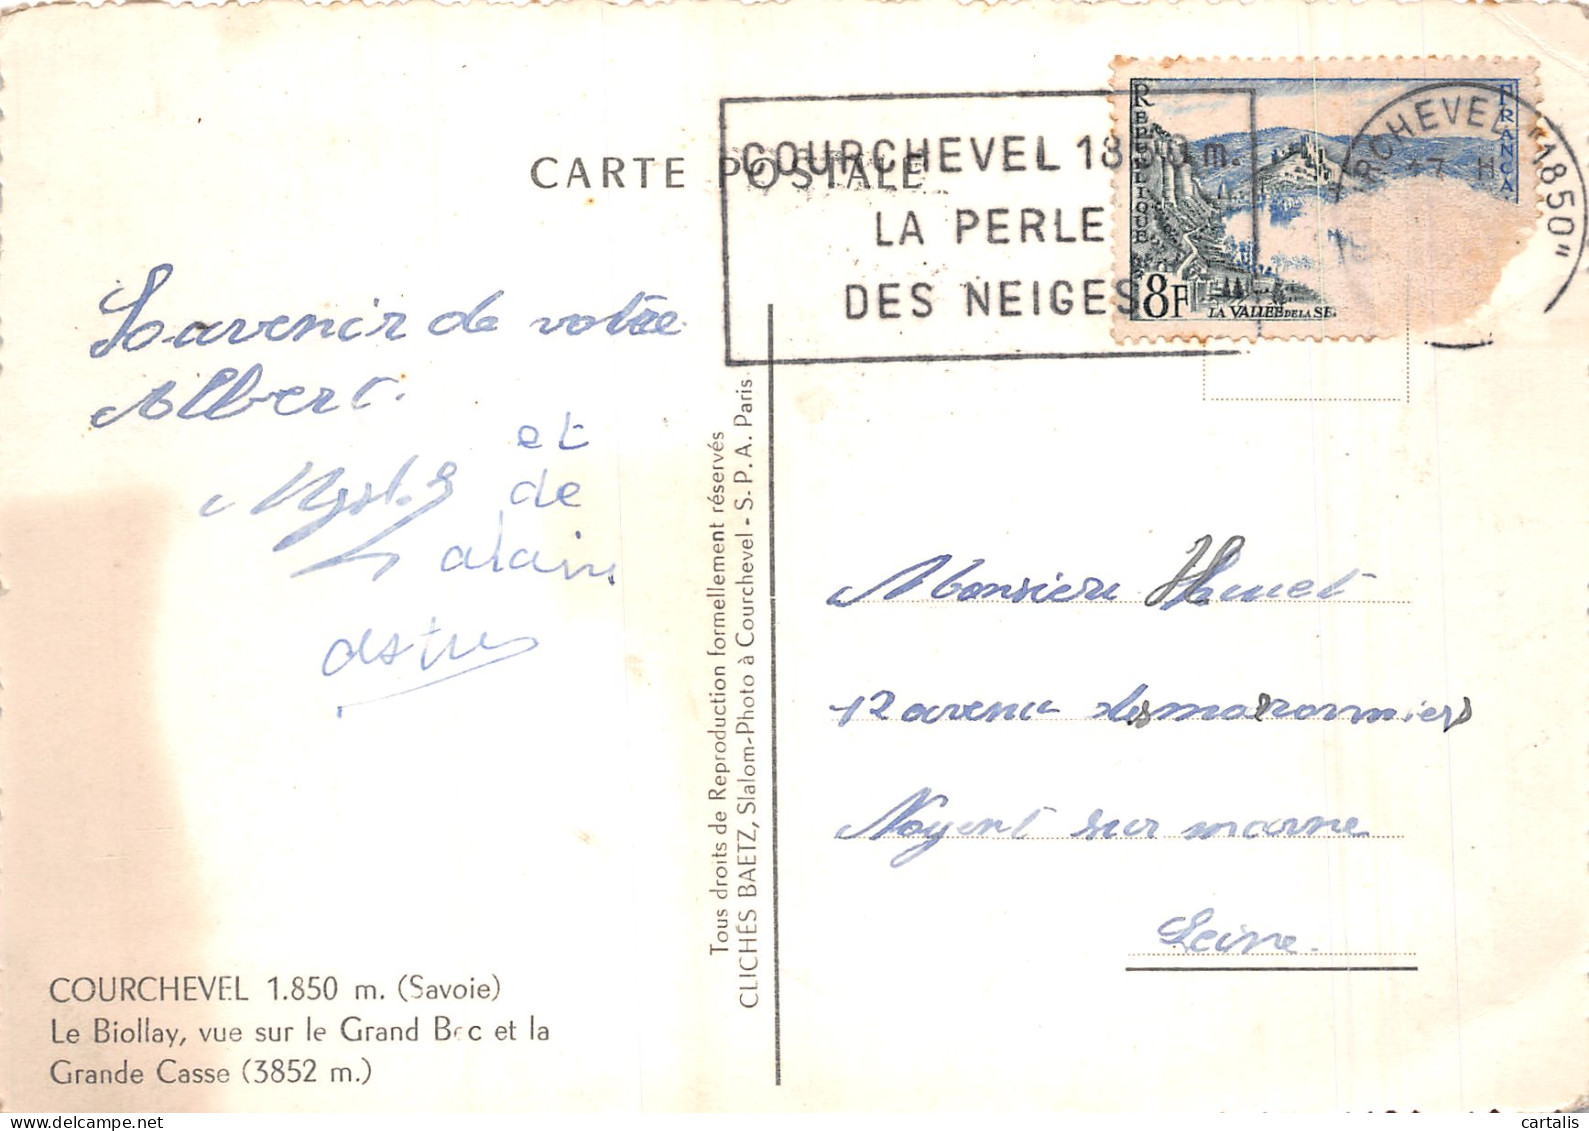 CARTE POSTALE
COURCHEVEL 1850 m.
LA PERLE
DES NEIGES
REPUBLIQUE
FRANCA
8F
LA VALLEE DE LA SE
RCHEVEL "1850"
17 H
Souvenir de votre
Albert.
et
de
alain
Tous droits de Reproduction formellement réservés
CLICHÉS BAETZ, Slalom-Photo à Courchevel - S. P. A. Paris
Monsieur Huet
12 avenue des maronniers
Nogent sur marne
Seine.
COURCHEVEL 1.850 m. (Savoie)
Le Biollay, vue sur le Grand Bec et la
Grande Casse (3852 m.)
cartalis